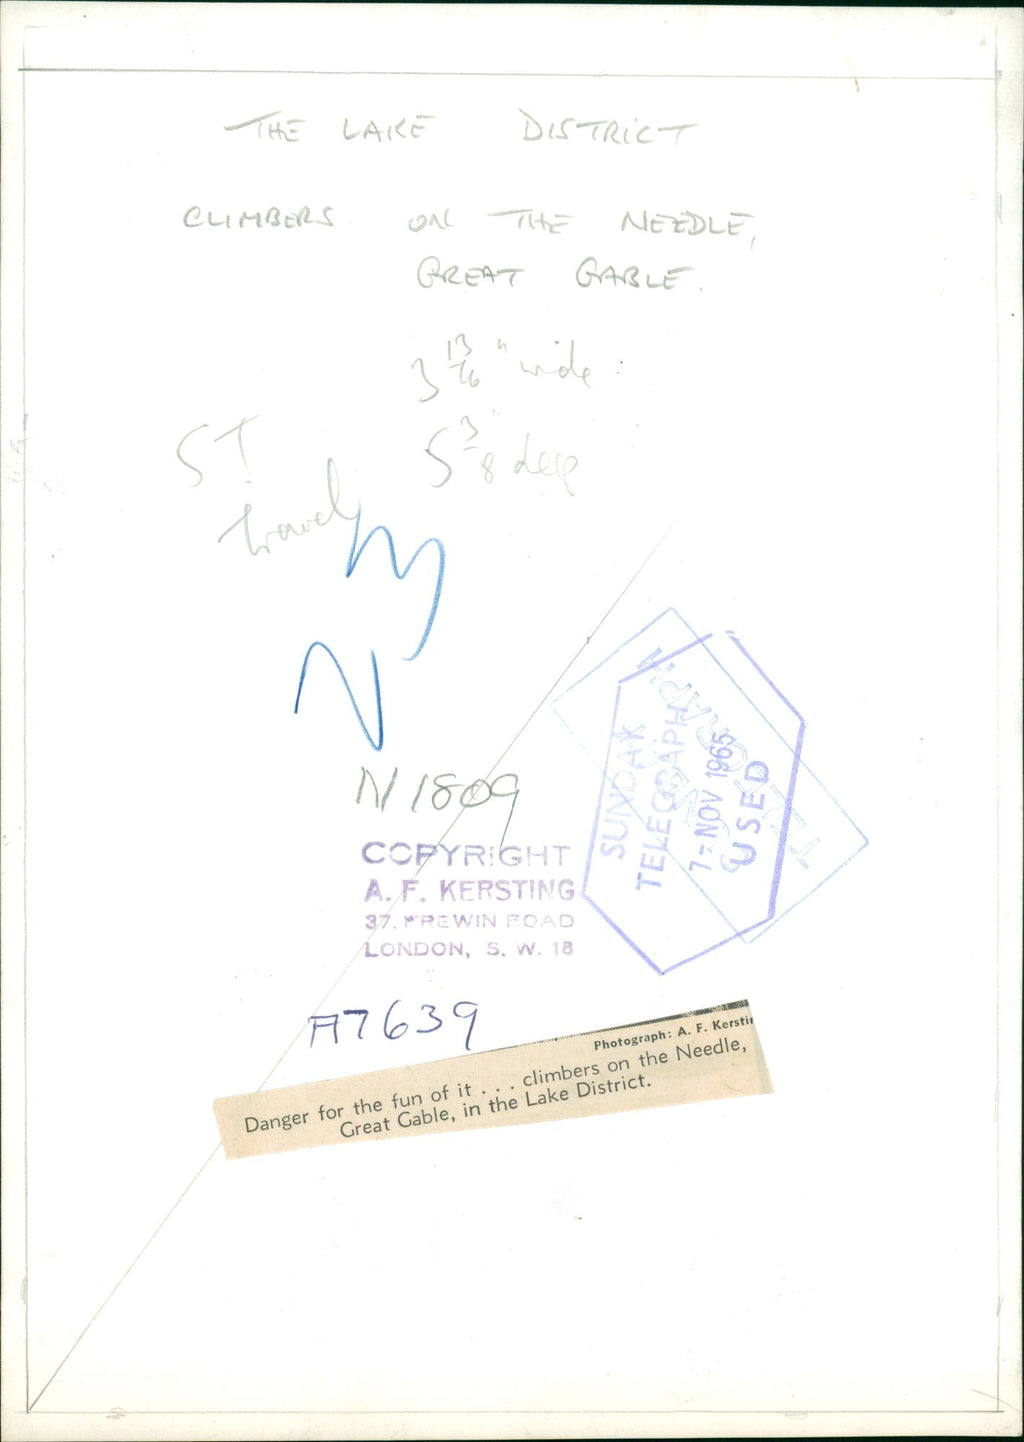 THE LAKE DISTRICT
CLIMBERS ON THE NEEDLE,
GREAT GABLE.
3 13/16" wide
5 3/8" deep
ST
travel
N1809
COPYRIGHT
A. F. KERSTING
37, FREWIN ROAD
LONDON, S. W. 18
SUNDAY
TELEGRAPH
7 - NOV 1965
USED
TELEGRAPH
A7639
Photograph: A. F. Kerstin
Danger for the fun of it . . . climbers on the Needle,
Great Gable, in the Lake District.